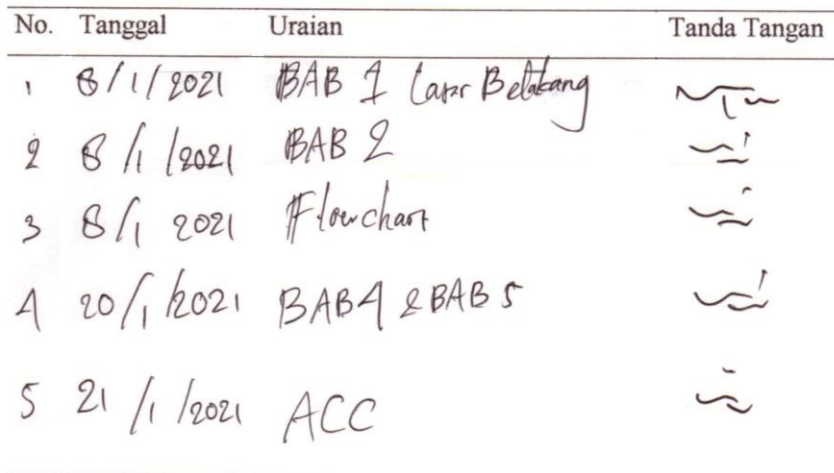 No. Tanggal Uraian Tanda Tangan
1 8/1/2021 BAB 1 Latar Belakang
2 8/1/2021 BAB 2
3 8/1 2021 Flowchart
4 20/1/2021 BAB 4 & BAB 5
5 21/1/2021 ACC